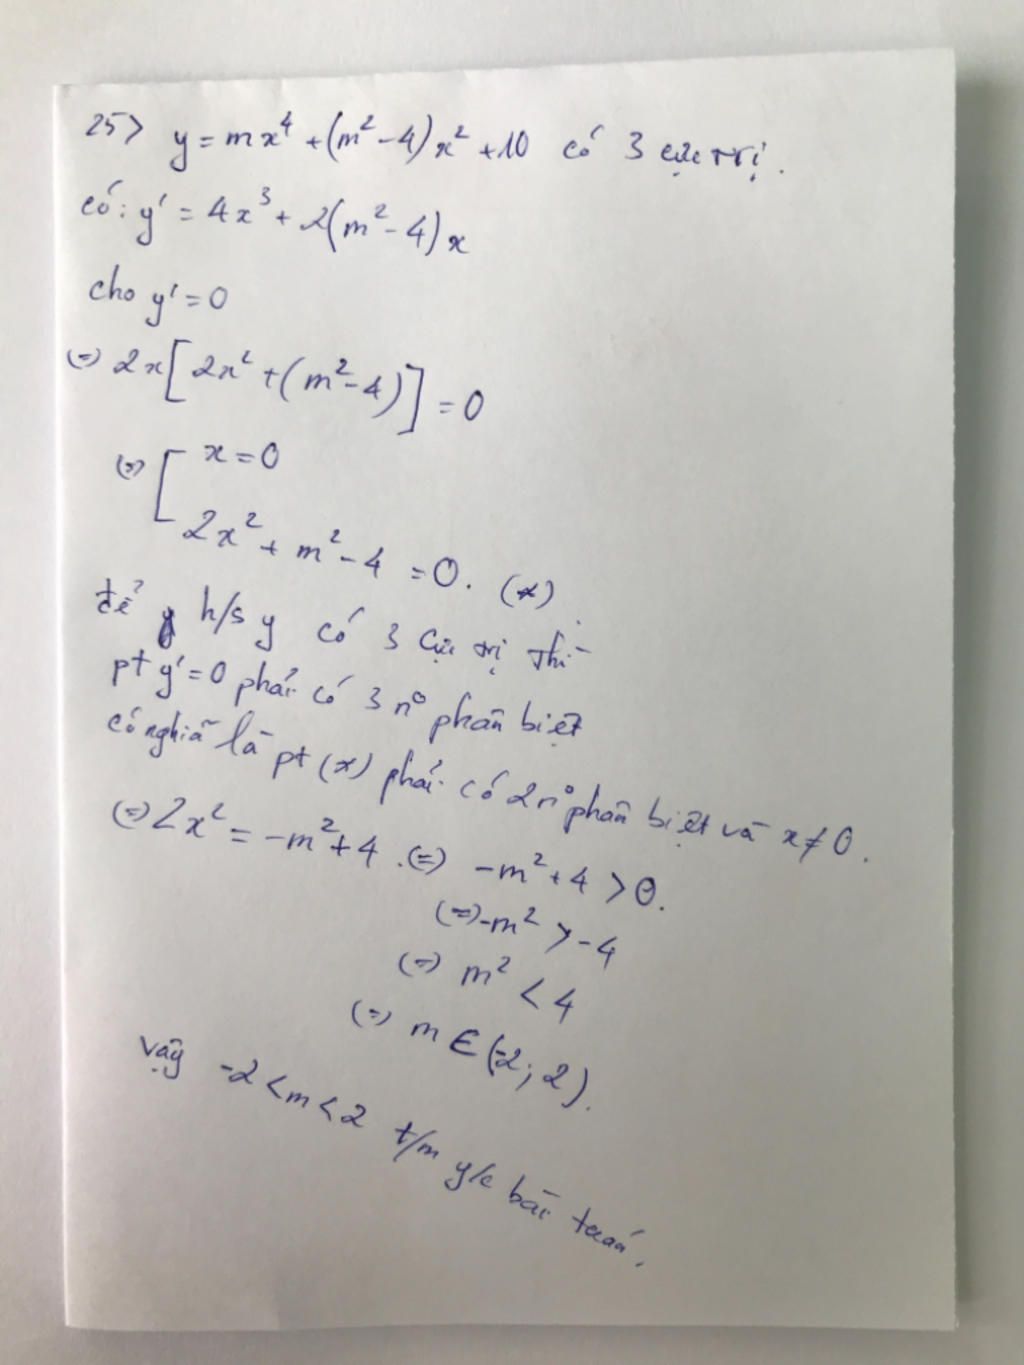 25> y = mx⁴ + (m² - 4)x² + 10 có 3 cực trị.
có: y' = 4x³ + 2(m² - 4)x
cho y' = 0
(=) 2x[2x² + (m² - 4)] = 0
(=) [ x = 0
2x² + m² - 4 = 0. (*)
để h/s y có 3 cực trị thì
pt y' = 0 phải có 3 n° phân biệt
có nghĩa là pt (*) phải có 2 n° phân biệt và x ≠ 0.
(=) 2x² = -m² + 4 . (=) -m² + 4 > 0.
(=) -m² > -4
(=) m² < 4
(=) m ∈ (-2; 2).
vậy -2 < m < 2 t/m y/c bài toán.